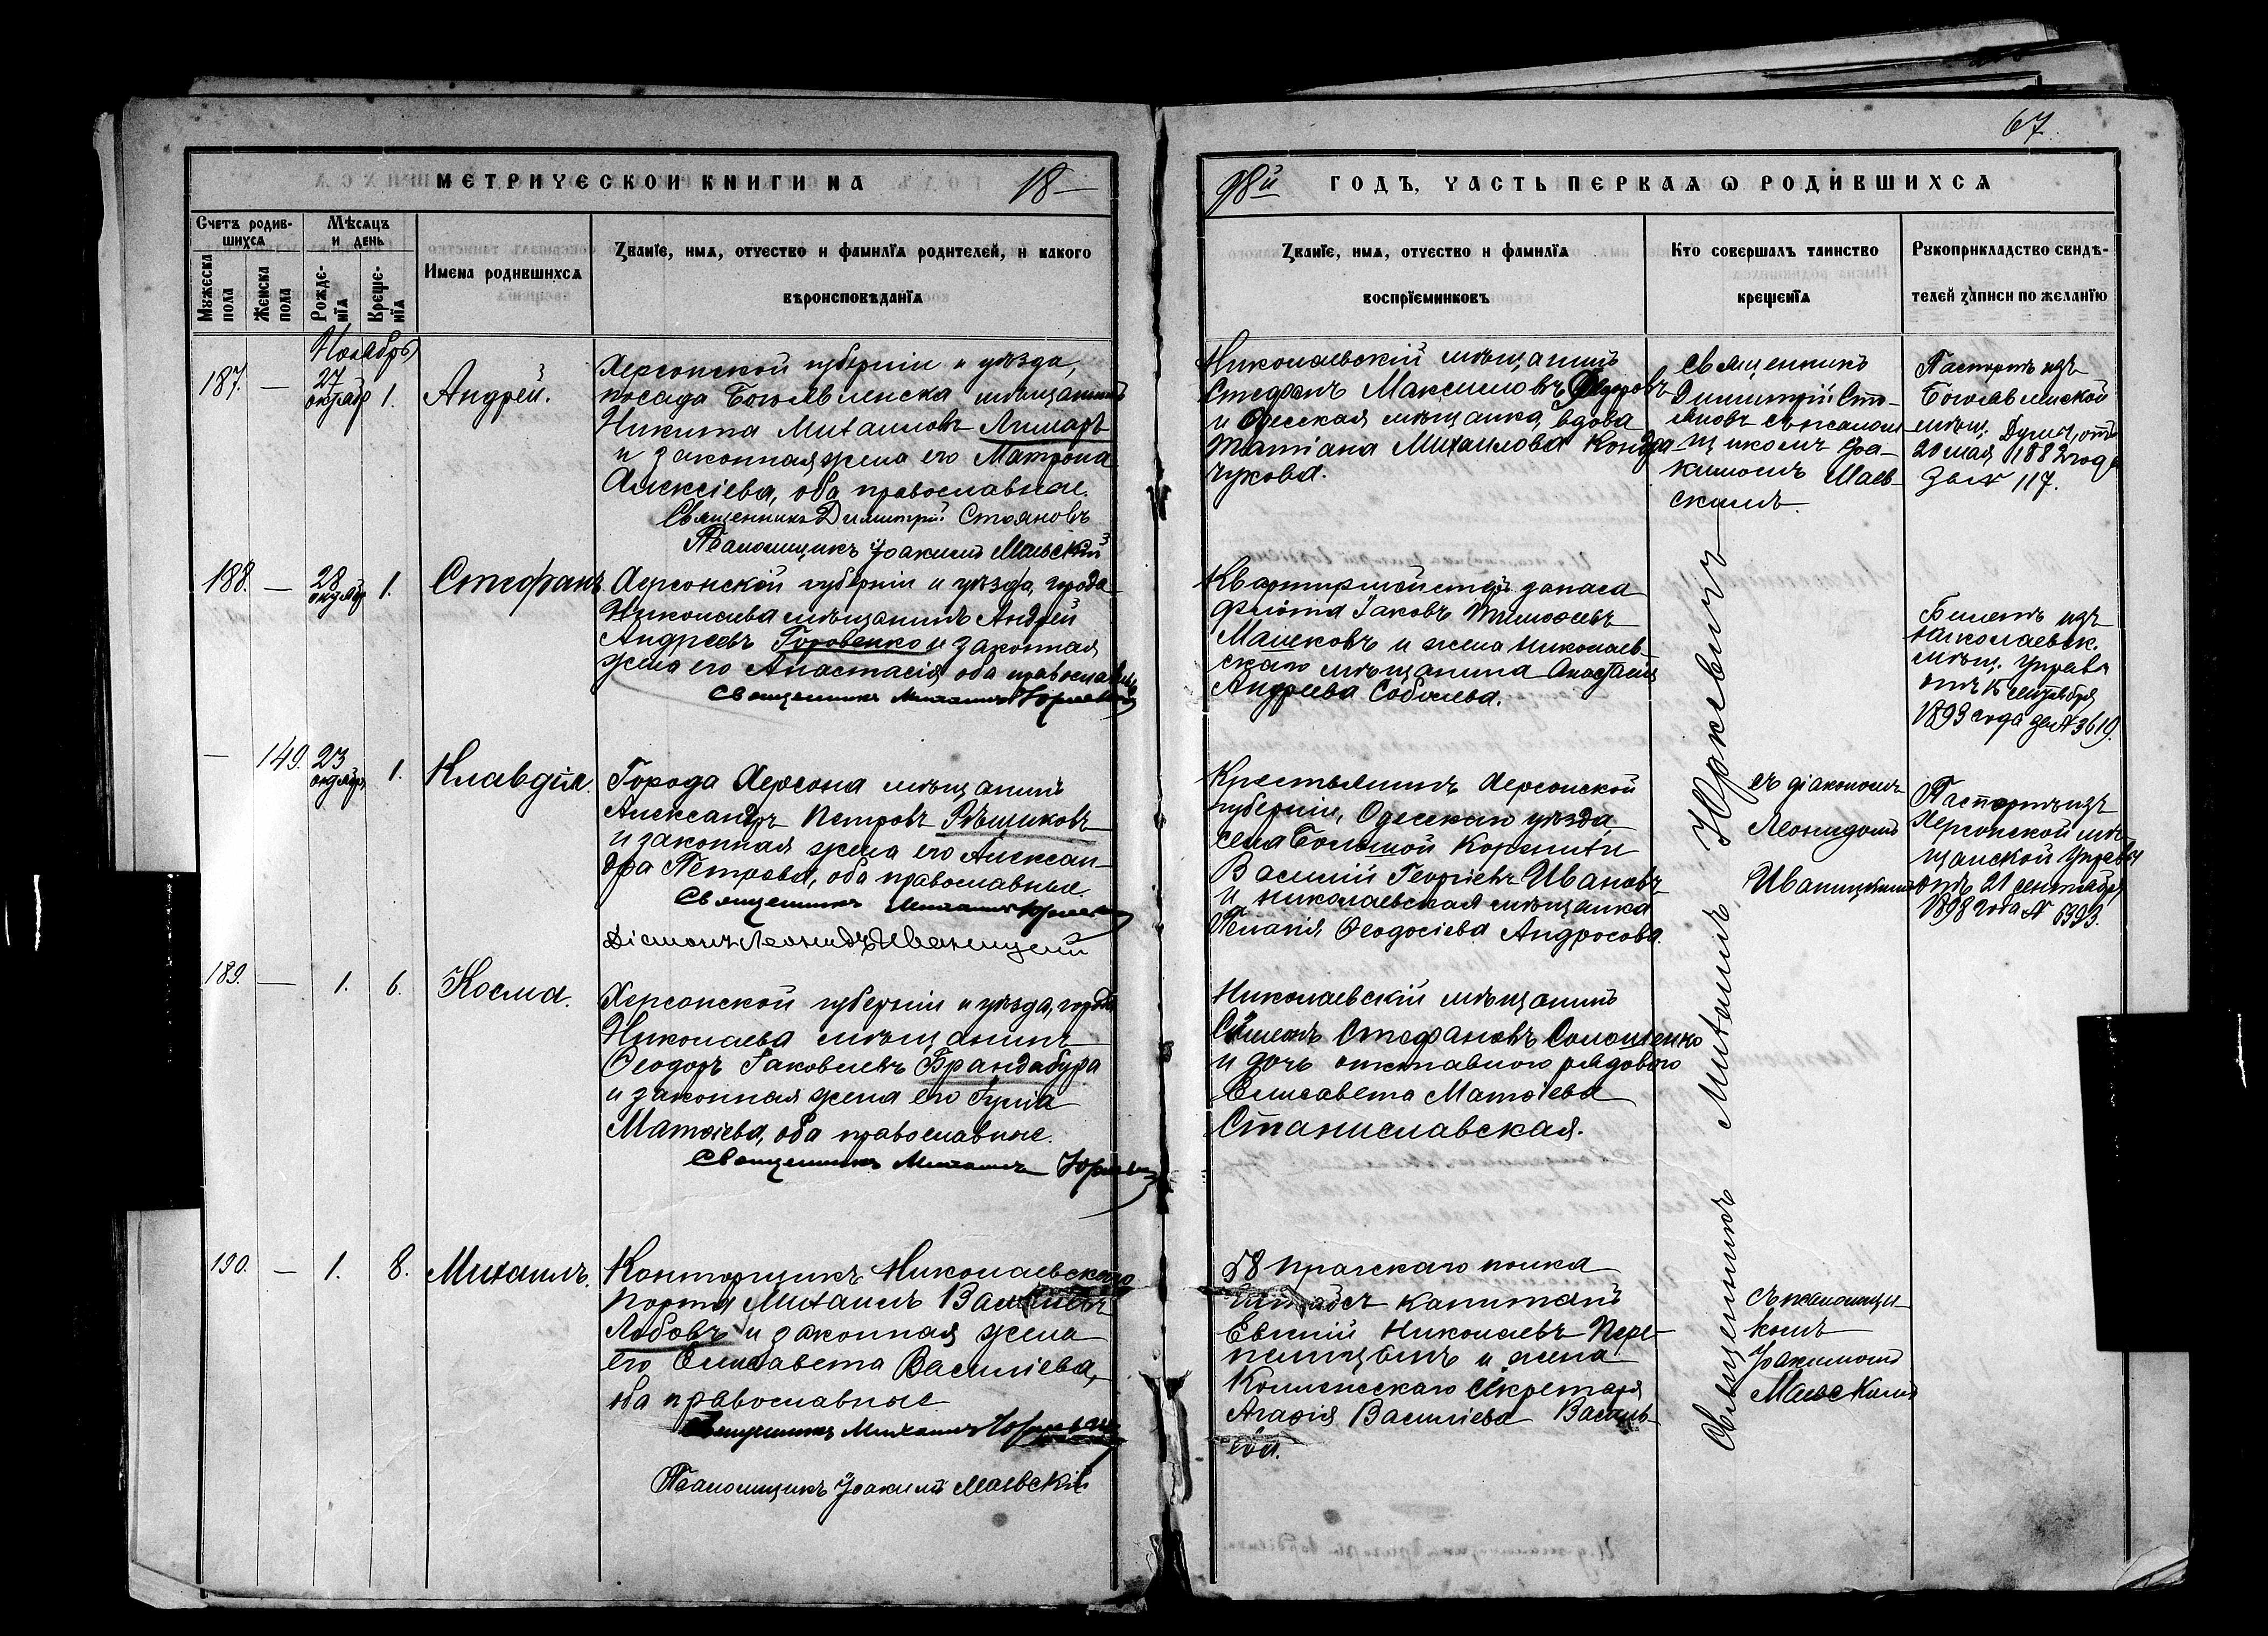 67.
МЕТРИЧЕСКОЙ КНИГИ НА 18—
98й ГОДЪ, ЧАСТЬ ПЕРВАЯ Ѡ РОДИВШИХСЯ
Счетъ родив-
шихся
Мужеска
пола
Женска
пола
Мѣсяцъ
и день
Рожде-
нїя
Креще-
нїя
Имена родившихся
Званїе, имя, отчество и фамилїа родителей, и какого
вѣроисповѣданїа
Званїе, имя, отчество и фамилїа
воспрїемниковъ
Кто совершалъ таинство
крещенїа
Рукоприкладство свидѣ-
телей записи по желанїю
Ноябрь
187. — 27 октябр 1. Андрей.
Херсонской губерніи и уѣзда,
посада Богоявленска мѣщанинъ
Никита Михаиловъ Лимаръ
и законная жена его Матрона
Алексіева, оба православные.
Священникъ Димитрій Стояновъ
Псаломщикъ Іоакимъ Маевскій
Николаевскій мѣщанинъ
Стефанъ Максимовъ Ѳедоровъ
и Одесская мѣщанка, вдова
Татіана Михаилова Кондра-
чукова.
Священникъ
Димитрій Сто-
яновъ съ псалом-
щикомъ Іоа-
кимомъ Маев-
скимъ.
Паспортъ изъ
Богоявленской
мѣщ. Думы, отъ
20 мая 1882 года
за № 117.
188. — 28 октябр 1. Стефанъ.
Херсонской губерніи и уѣзда, города
Николаева мѣщанинъ Андрей
Андреевъ Горовенко и законная
жена его Анастасія оба православные
Священникъ Михаилъ Юркевичъ
Квартирмейстеръ запаса
флота Іаковъ Тимоѳеевъ
Машековъ и жена николаев-
скаго мѣщанина Анастасія
Андреева Соболева.
Билетъ изъ
николаевск.
мѣщ. управы
отъ 15 сентября
1893 года за № 3619.
— 149. 23 октябр 1. Клавдія.
Города Херсона мѣщанинъ
Александръ Петровъ Рѣщиковъ
и законная жена его Алексан-
дра Петрова, оба православные.
Священникъ Михаилъ Юркевичъ
Діаконъ Леонидъ Иваницкій
Крестьянинъ Херсонской
губерніи, Одесскаго уѣзда
села Большой Коренихи
Василій Георгіевъ Ивановъ
и николаевская мѣщанка
Пелагія Ѳеодосіева Андросова.
съ діакономъ
Леонидомъ
Иваницкимъ
Паспортъ изъ
Херсонской мѣ-
щанской управы
отъ 21 сентября
1898 года № 5393.
189. — 1. 6. Косма.
Херсонской губерніи и уѣзда, города
Николаева мѣщанинъ
Ѳеодоръ Іаковлевъ Брандабура
и законная жена его Іулія
Матѳіева, оба православные.
Священникъ Михаилъ Юркевичъ
Николаевскій мѣщанинъ
Симеонъ Стефановъ Соломенко
и дочь отставного рядового
Елисавета Матѳіева
Станиславская.
190. — 1. 8. Михаилъ.
Конторщикъ Николаевскаго
порта Михаилъ Васильевъ
Лобовъ и законная жена
его Елисавета Василіева,
оба православные
Священникъ Михаилъ Юркевичъ
Псаломщикъ Іоакимъ Маевскій
58 пражскаго полка
Штабсъ капитанъ
Евгеній Николаевъ Пере-
пелицынъ и жена
Коллежскаго Секретаря
Агафія Василіева Василь-
ева.
Священникъ Михаилъ Юркевичъ
съ псаломщи-
комъ
Іоакимомъ
Маевскимъ